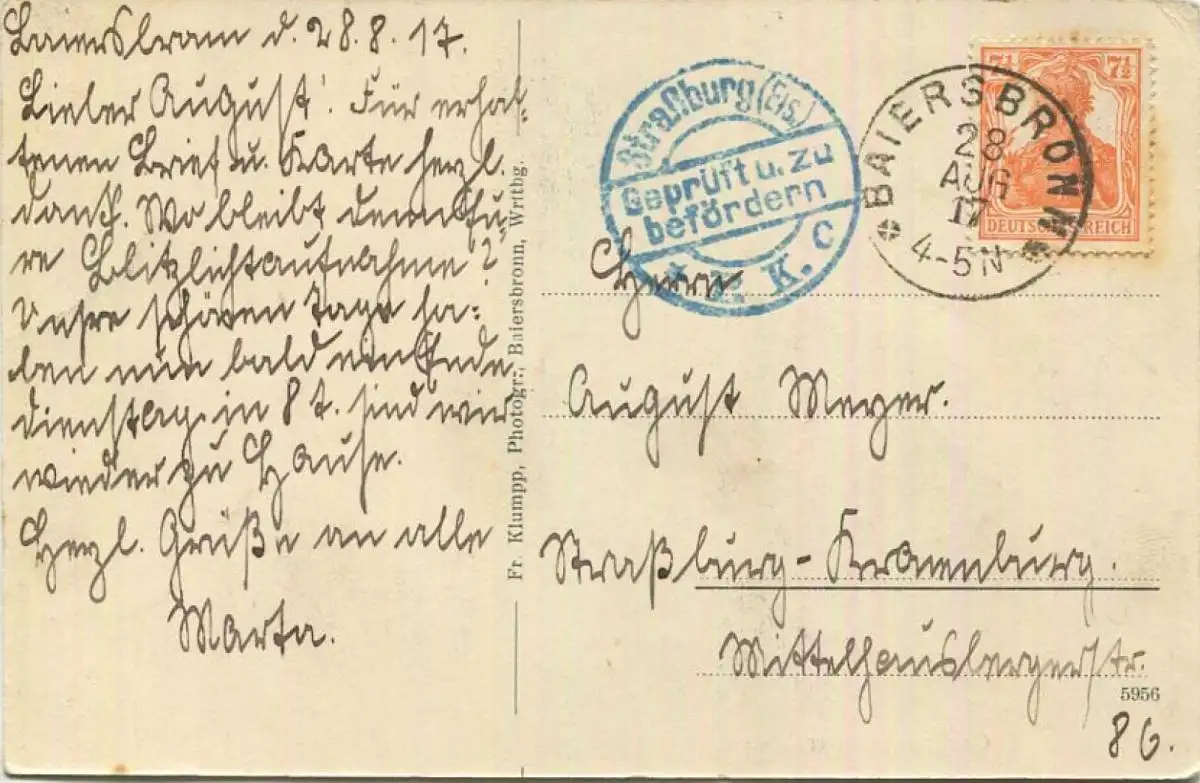 Baiersbronn d. 28.8.17.
Lieber August! Für erhal-
tenen Brief u. Karte herzl.
dank. Wo bleibt denn Eu-
re Blitzlichtaufnahme?
Unsre schönen Tage ha-
ben nun bald ein Ende
dienstag in 8 t. sind wir
wieder zu Hause.
Herzl. Grüße an alle
Marta.
Fr. Klumpp, Photogr., Baiersbronn, Wrttbg.
Straßburg (Els.)
Geprüft u. zu
befördern
P. K. c
BAIERSBRONN
28
AUG
17
4-5 N
7½ 7½
DEUTSCHES REICH
Herrn
August Meyer.
Straßburg-Kronenburg.
Mittelhausbergerstr.
5956
86.